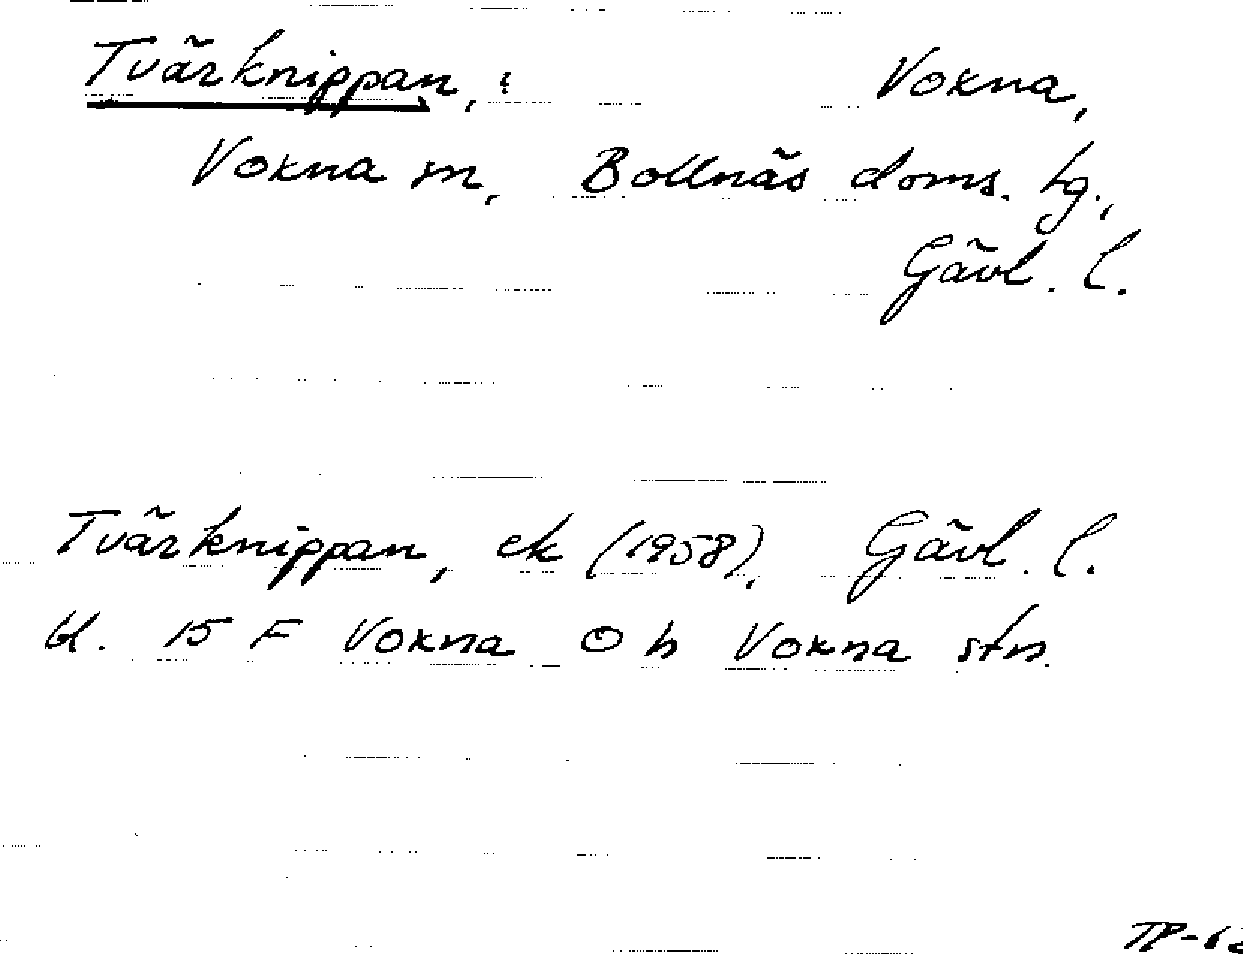 Tvärknippan, i Voxna,
Voxna sn, Bollnäs doms. hg.,
Gävl. l.
Tvärknippan, ek (1958), Gävl. l.
bl. 15 F Voxna O h Voxna stn.
TP-62